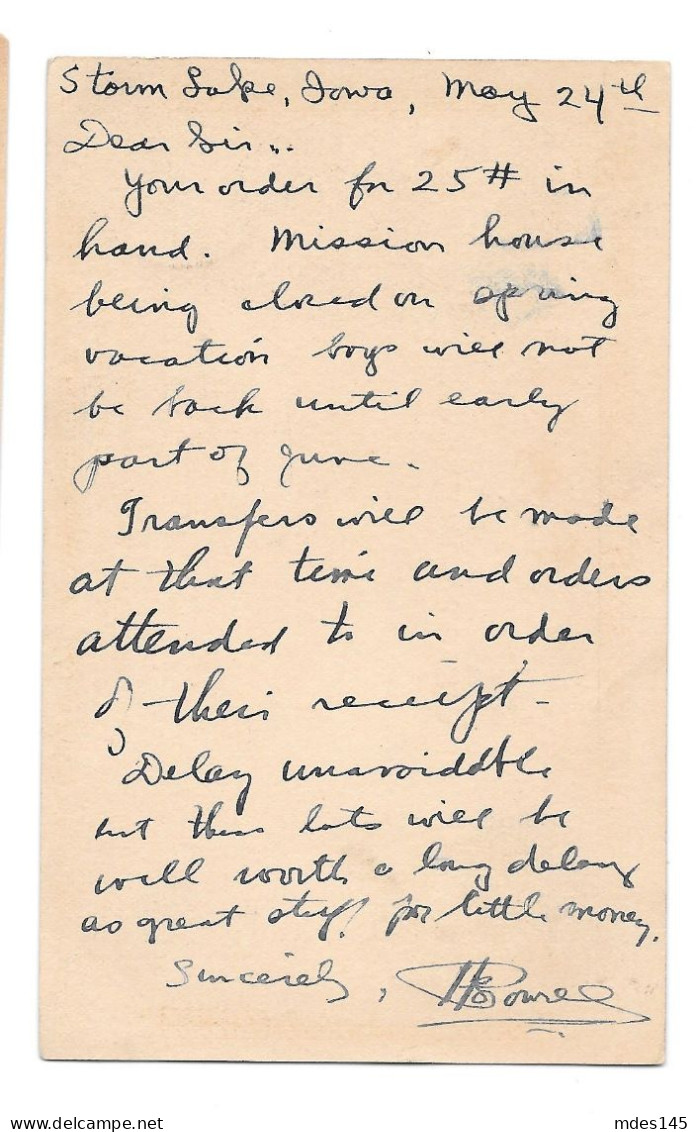 Storm Lake, Iowa, May 24th
Dear Sir...
Your order for 25# in
hand. Mission house
being closed on spring
vacation boys will not
be back until early
part of June.
Transfers will be made
at that time and orders
attended to in order
of their receipt -
Delay unavoidable
but these lots will be
well worth a long delay
as great stuff for little money.
Sincerely,
mdes145